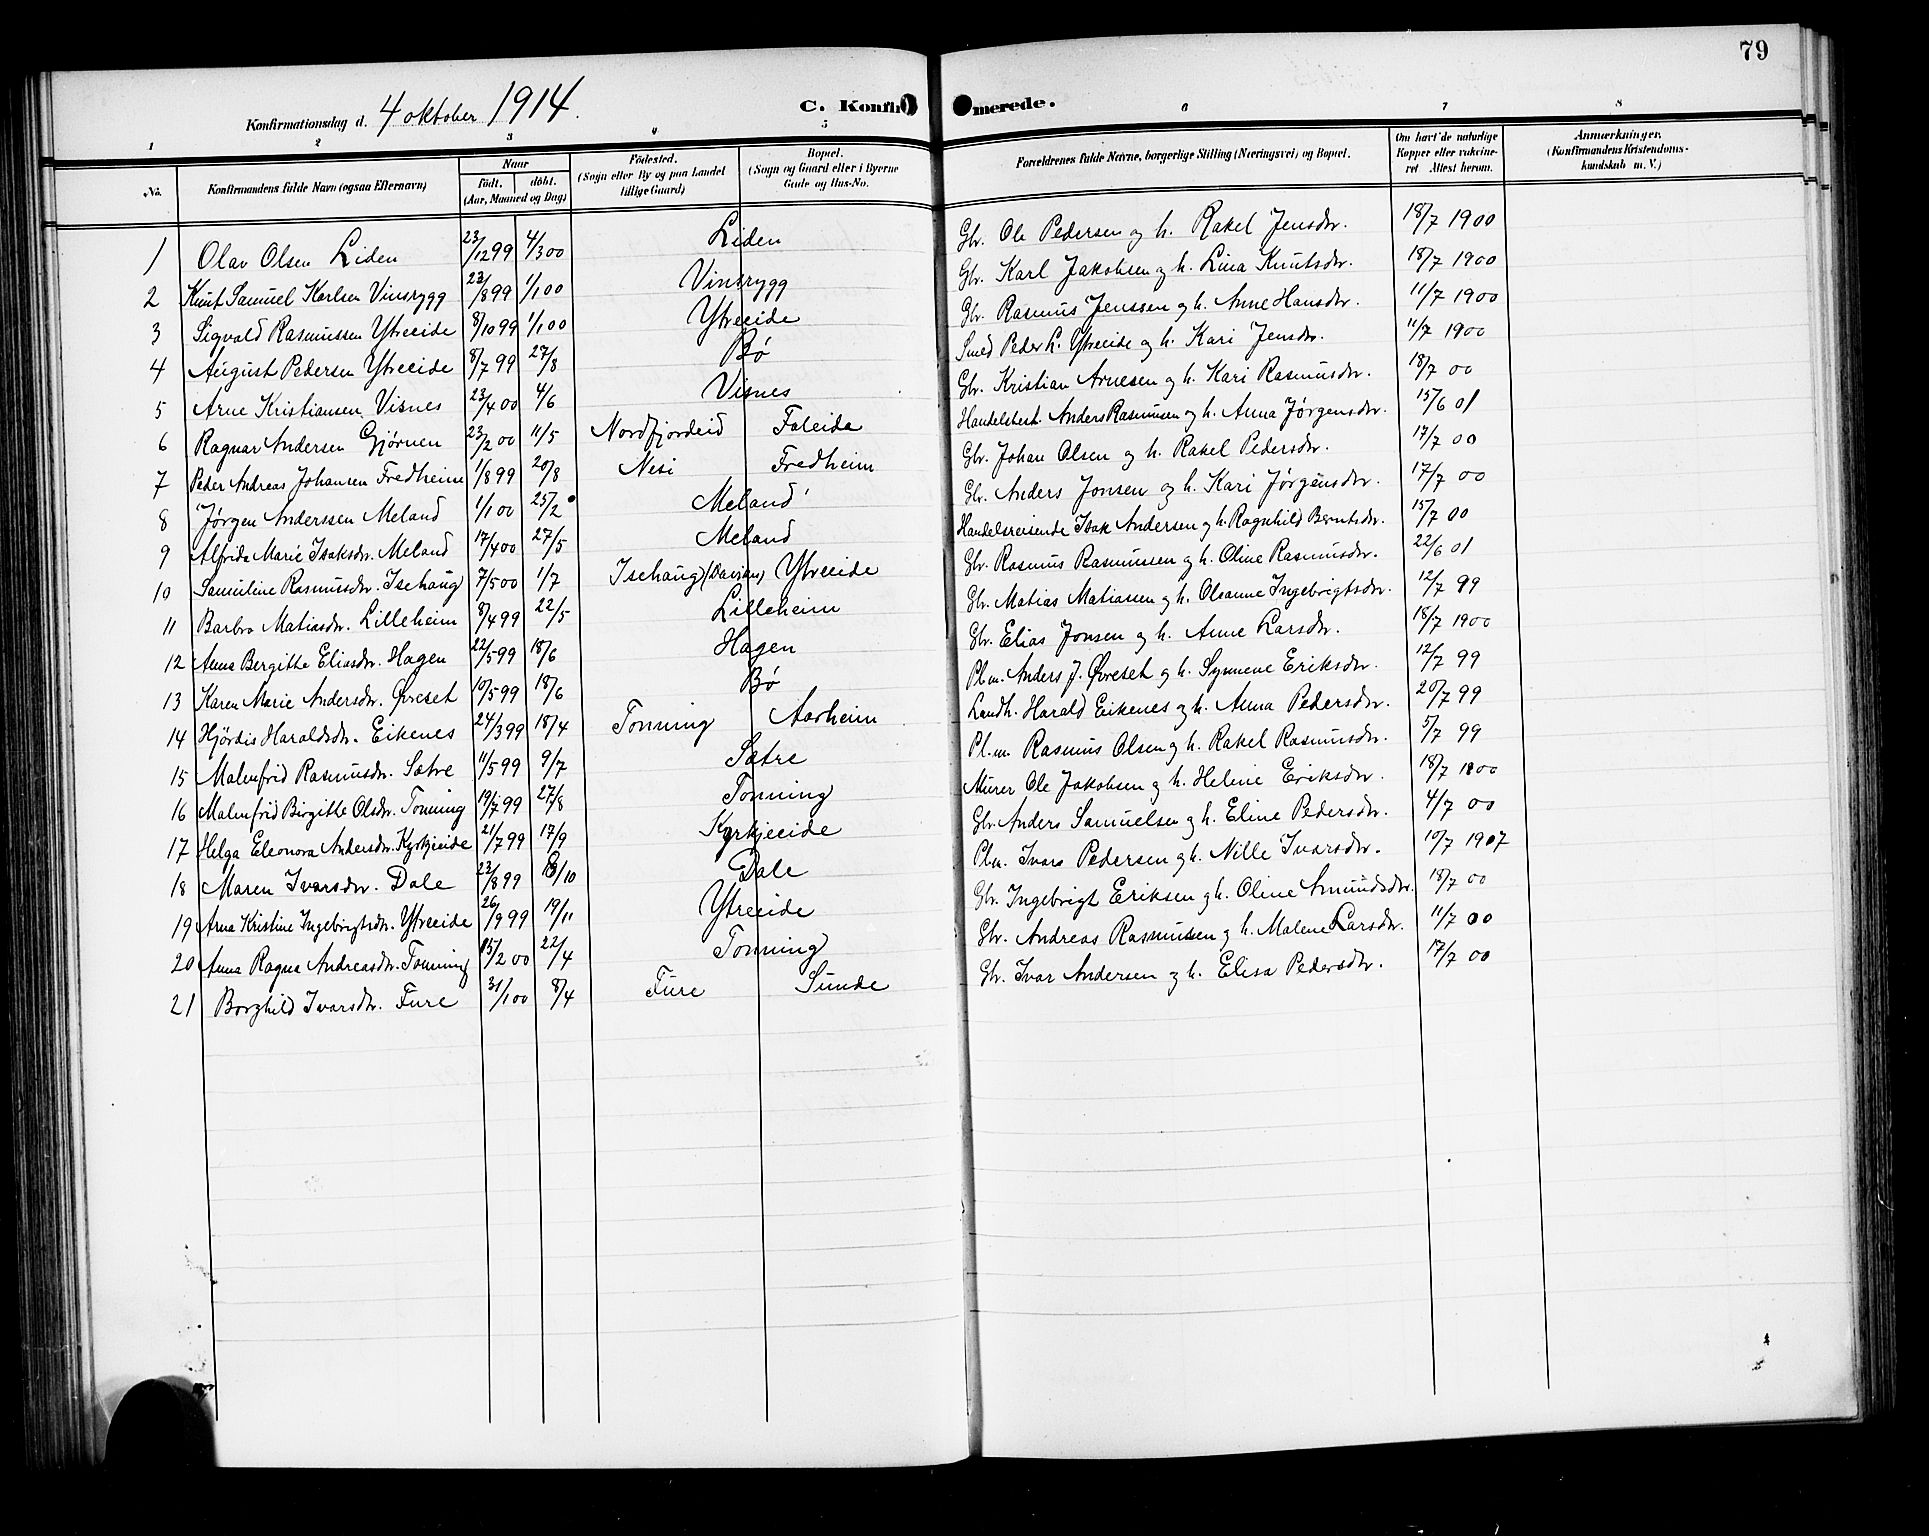 79
Konfirmationsdag d. 4 oktober 1914. C. Konfirmerede.
1 2 3 4 5 6 7 8
No. Konfirmandens fulde Navn (ogsaa Efternavn) Naar født, døbt. (Aar, Maaned og Dag) Fødested. (Sogn eller By og paa Landet tillige Gaard) Bopæl. (Sogn og Gaard eller i Byerne Gade og Hus-No. Forældrenes fulde Navne, borgerlige Stilling (Næringsvei) og Bopæl. Om havt de naturlige Kopper eller vaccineret Attest herom. Anmærkninger. (Konfirmandens Kristendomskundskab m. V.)
1 Olav Olsen Liden 23/12 99 4/3 00 Liden Gbr. Ole Pedersen og h. Rakel Jensdr. 18/7 1900
2 Knut Samuel Karlsen Vinsrygg 23/8 99 1/1 00 Vinsrygg Gbr. Karl Jakobsen og h. Lina Knutsdr. 18/7 1900
3 Sigvald Rasmussen Ytreeide 8/10 99 1/1 00 Ytreeide Gbr. Rasmus Jenssen og h. Anne Hansdr. 11/7 1900
4 August Pedersen Ytreeide 8/7 99 27/8 Bø Smed Peder h. Ytreeide og h. Kari Jensdr. 11/7 1900
5 Arne Kristiansen Visnes 23/4 00 4/6 Visnes Gbr. Kristian Arnesen og h. Kari Rasmusdr. 18/7 00
6 Ragnar Andersen Gjørven 23/2 00 11/5 Nordfjordeid Faleide Handelsbest. Anders Rasmusen og h. Anna Jørgensdr. 15/6 01
7 Peder Andreas Johansen Fredheim 1/8 99 20/8 Nesi Fredheim Gbr. Johan Olsen og h. Rakel Pedersdr. 17/7 00
8 Jørgen Anderssen Meland 1/1 00 25/2 Meland Gbr. Anders Jonsen og h. Kari Jørgensdr. 17/7 00
9 Alfrida Marie Isaksdr. Meland 17/4 00 27/5 Meland Handelsreisende Isak Andersen og h. Ragnhild Berntsdr. 15/7 00
10 Samuline Rasmusdr. Isehaug 7/5 00 1/7 Isehaug (Daviken) Ytreeide Gbr. Rasmus Rasmussen og h. Oline Rasmusdr. 22/6 01
11 Barbro Matiasdr. Lilleheim 8/4 99 22/5 Lilleheim Gbr. Matias Matiasen og h. Olsanne Ingebrigtsdr. 12/7 99
12 Anna Bergithe Eliasdr. Hagen 22/5 99 18/6 Hagen Gbr. Elias Jonsen og h. Anne Larsdr. 18/7 1900
13 Karen Marie Andersdr. Øvreset 10/5 99 18/6 Bø Plm. Anders J. Øvreset og h. Synneve Eriksdr. 12/7 99
14 Hjördis Haraldsdr. Eikenes 24/3 99 18/4 Tonning Aarheim Landh. Harald Eikenes og h. Anna Pedersdr. 20/7 99
15 Malmfrid Rasmusdr. Sætre 11/5 99 9/7 Sætre Pl.m. Rasmus Olsen og h. Rakel Rasmusdr. 5/7 99
16 Malmfrid Birgitte Olsdr. Tonning 19/7 99 27/8 Tonning Murer Ole Jakobsen og h. Helene Eriksdr. 18/7 1800
17 Helga Eleonora Andersdr. Kyrkjeeide 21/7 99 17/9 Kyrkjeeide Gbr. Anders Samuelsen og h. Eline Pedersdr. 4/7 00
18 Maren Ivarsdr. Dale 23/8 99 8/10 Dale Plm. Ivar Pedersen og h. Nille Ivarsdr. 10/7 1907
19 Anna Kristine Ingebrigtsdr. Ytreeide 26/9 99 19/11 Ytreeide Gbr. Ingebrigt Eriksen og h. Oline Amundsdr. 18/7 00
20 Anna Ragna Andreasdr. Tonning 15/2 00 22/4 Tonning Gbr. Andreas Rasmussen og h. Malene Larsdr. 11/7 00
21 Borghild Ivarsdr. Fure 31/1 00 8/4 Fure Sunde Gbr. Ivar Andersen og h. Elisa Pedersdr. 17/7 00